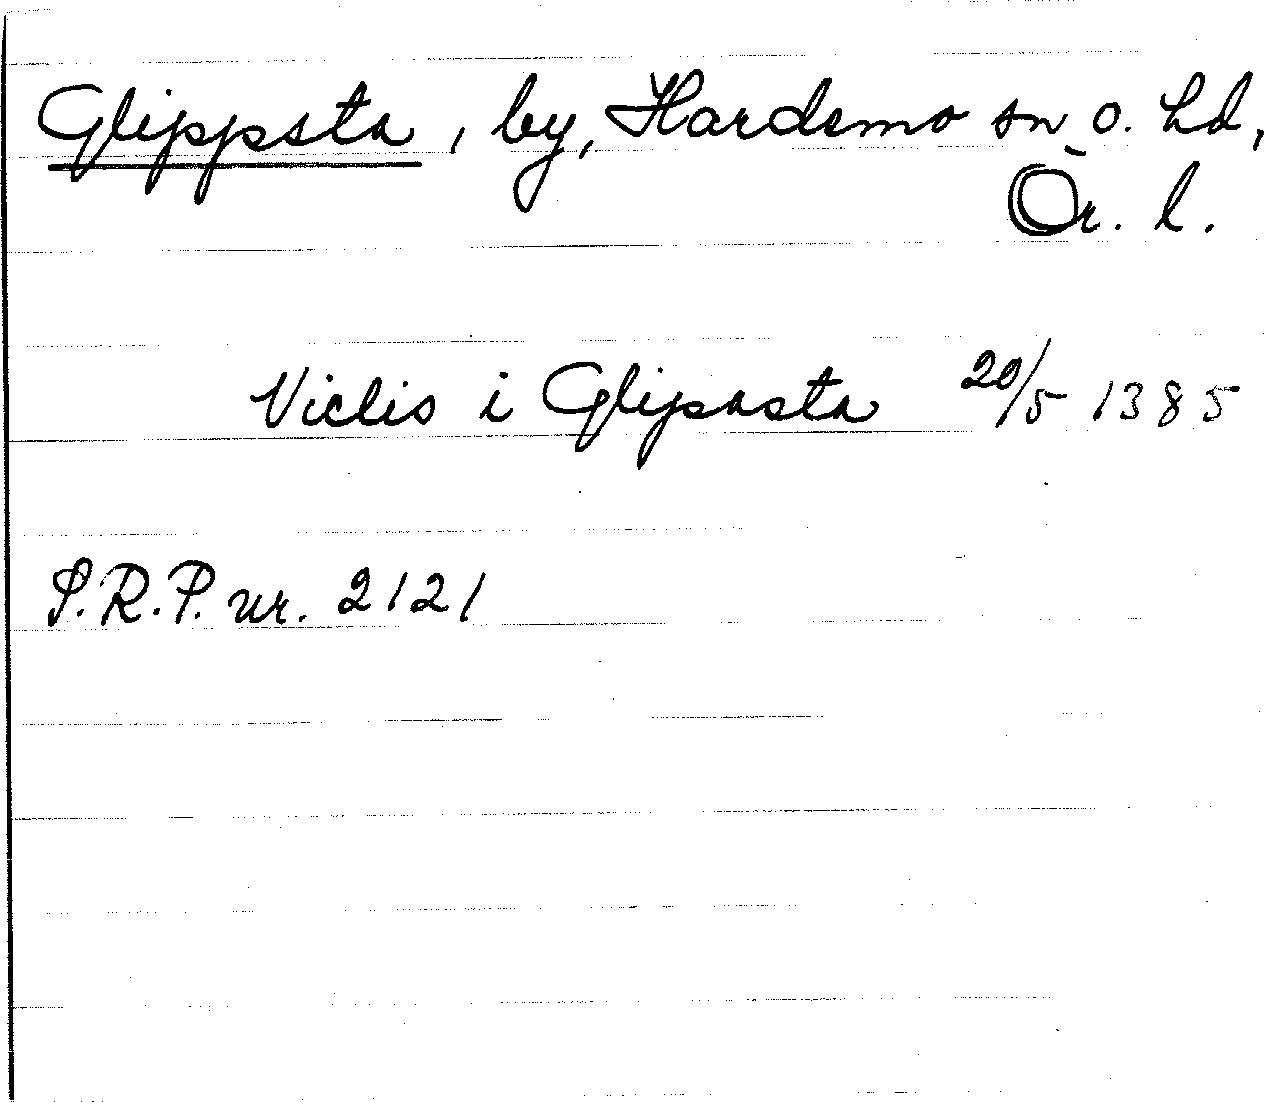 Glippsta, by, Hardemo sn o. hd,
Ör. l.
Viclis i Glipasta 20/5 1385
S.R.P. nr. 2121